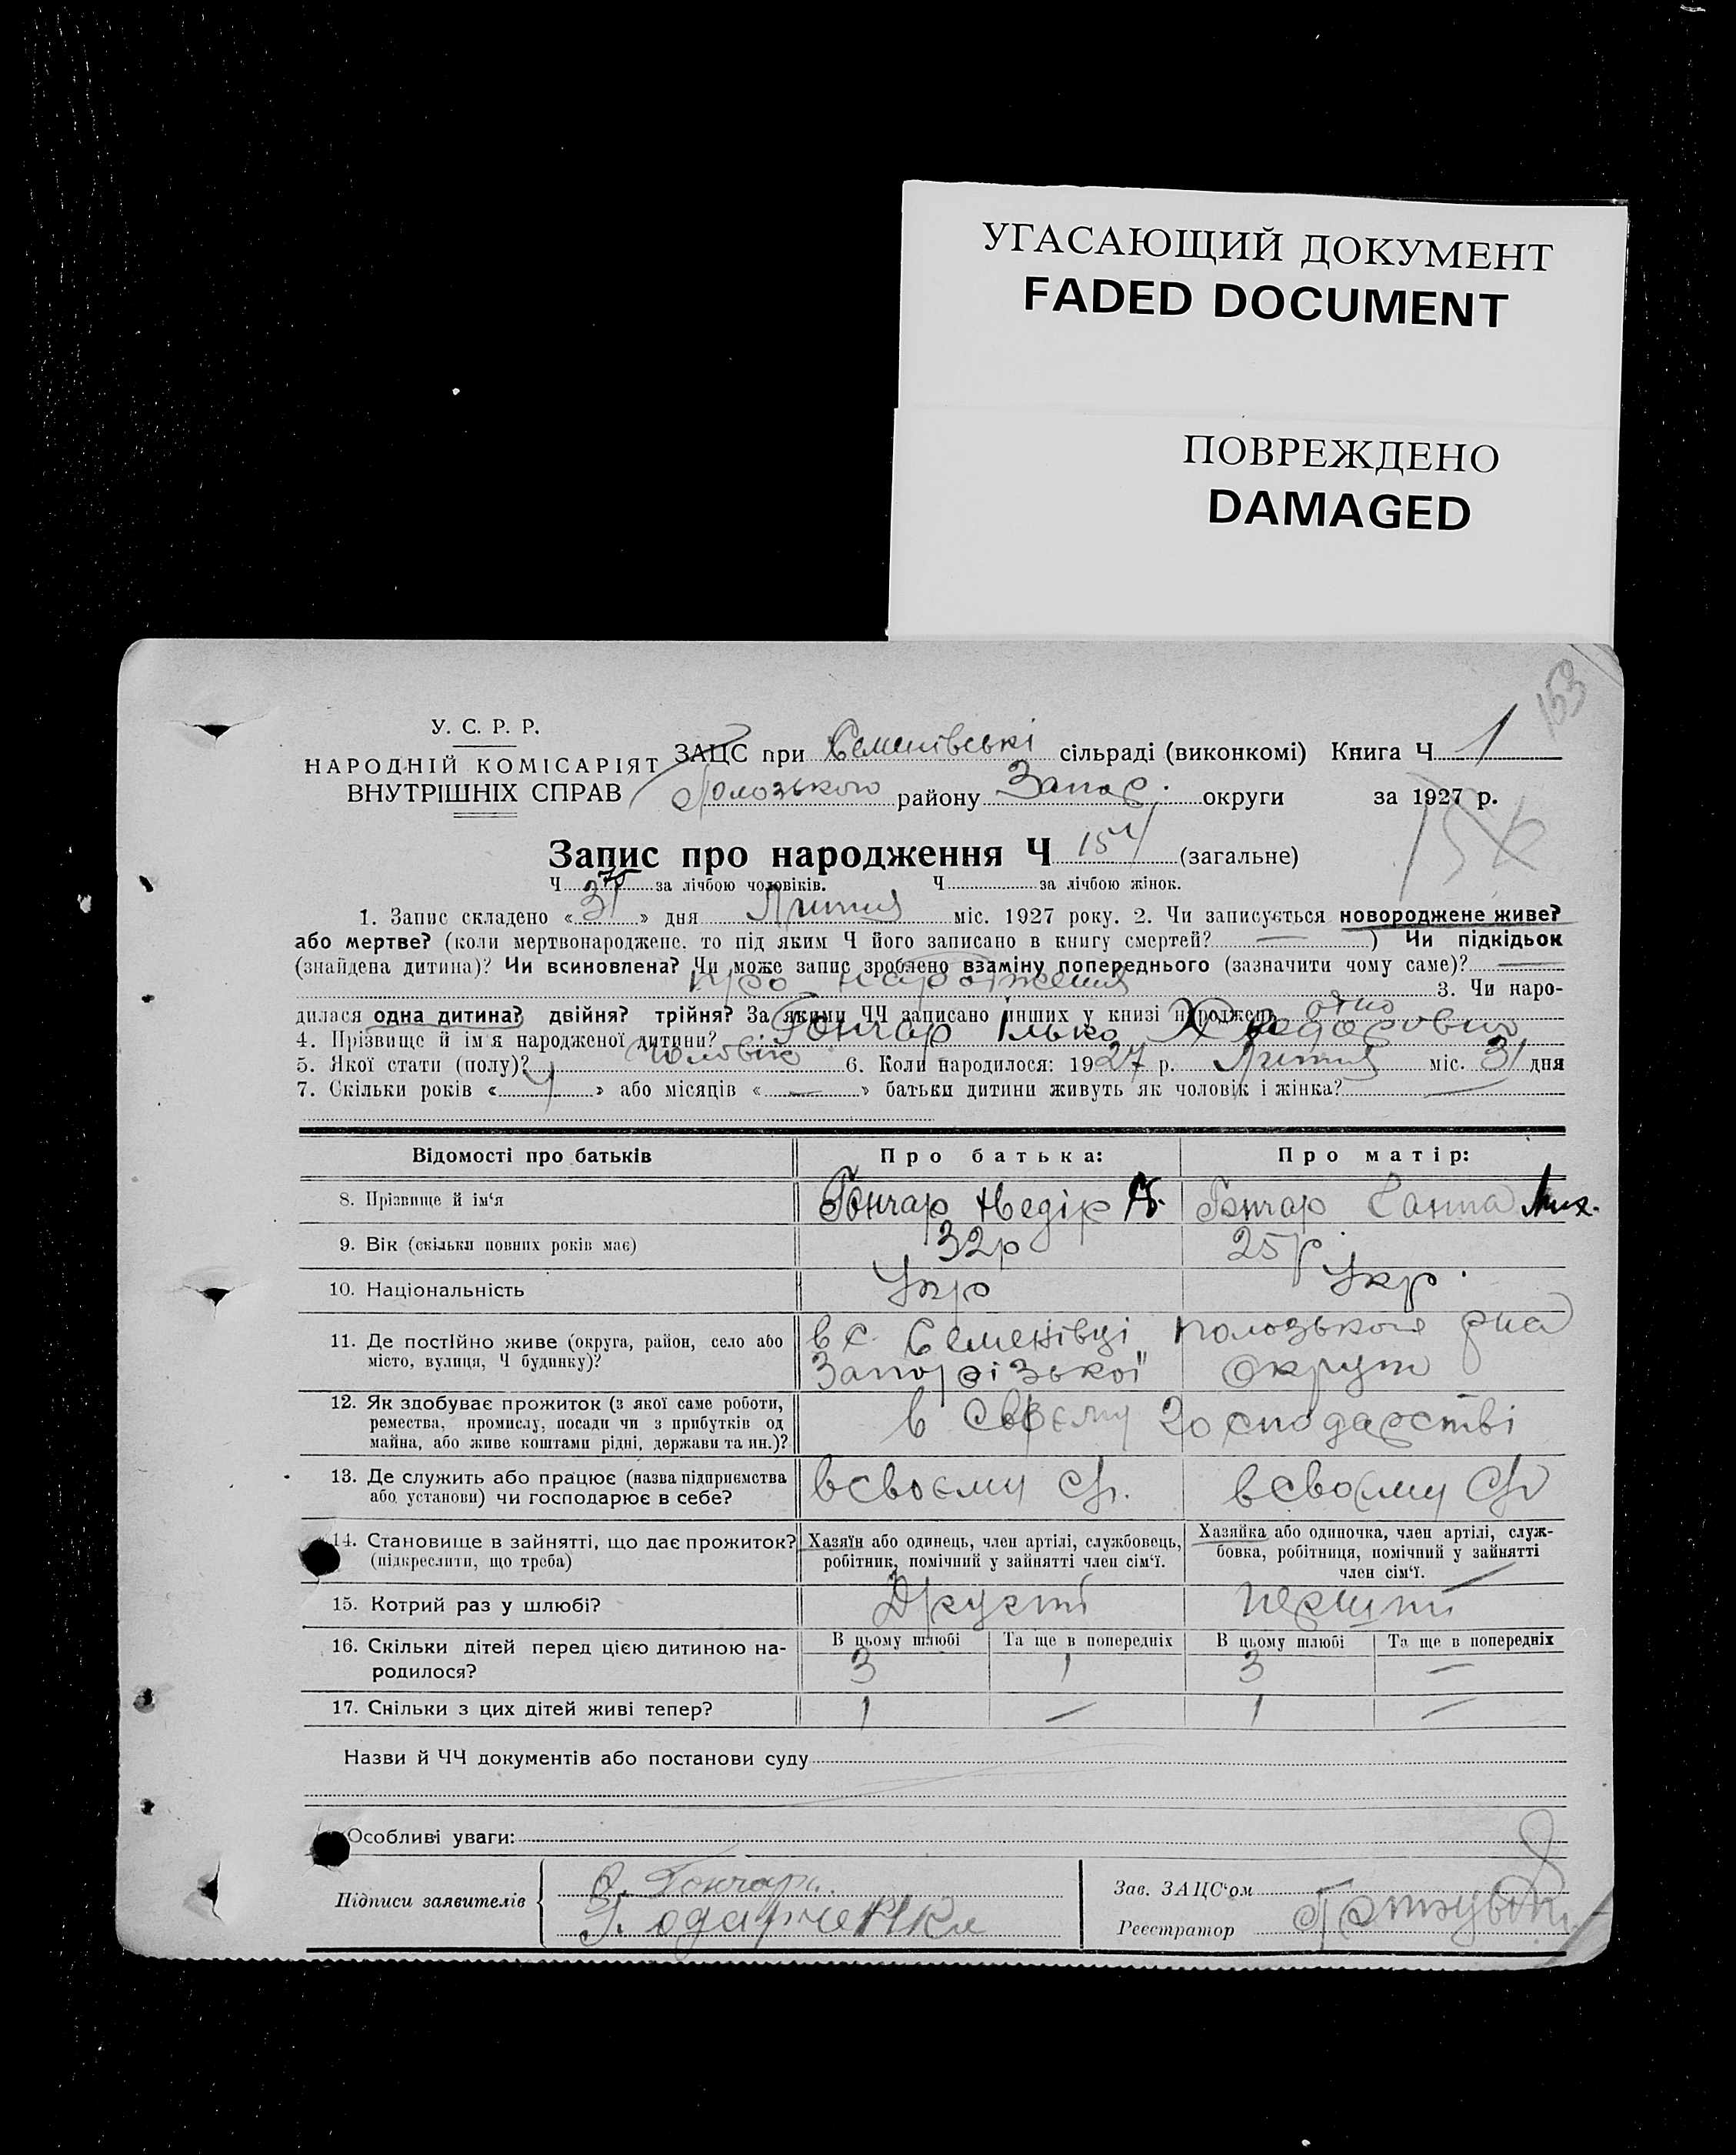 УГАСАЮЩИЙ ДОКУМЕНТ
FADED DOCUMENT
ПОВРЕЖДЕНО
DAMAGED
153
У. С. Р. Р.
НАРОДНІЙ КОМІСАРІЯТ
ВНУТРІШНІХ СПРАВ
ЗАЦС при Семенівські сільраді (виконкомі) Книга Ч. 1
Полозького району Запор. округи за 1927 р.
Запис про народження Ч 154 (загальне)
Ч. за лічбою чоловіків. Ч. за лічбою жінок.
1. Запис складено « 31 » дня Липня міс. 1927 року. 2. Чи записується новороджене живе?
або мертве? (коли мертвонароджене, то під яким Ч його записано в книгу смертей? — ) Чи підкідьок
(знайдена дитина)? Чи всиновлена? Чи може запис зроблено взаміну попереднього (зазначити чому саме)? —
про народження 3. Чи наро-
дилася одна дитина? двійня? трійня? За якими ЧЧ записано инших у книзі народжень одно
4. Прізвище й ім'я народженої дитини? Гончар Ілько
5. Якої стати (полу)? чоловік 6. Коли народилося: 1927 р. Липня міс. 31 дня
7. Скільки років « 4 » або місяців « — » батьки дитини живуть як чоловік і жінка? —
Відомості про батьків Про батька: Про матір:
8. Прізвище й ім'я Гончар Недір Гончар Ганна Мих.
9. Вік (скільки повних років має) 32р 25р.
10. Національність Укр Укр.
11. Де постійно живе (округа, район, село або
місто, вулиця, Ч будинку)?
в с. Семенівці Полозького р-на
Запорізької округи
12. Як здобуває прожиток (з якої саме роботи,
ремества, промислу, посади чи з прибутків од
майна, або живе коштами рідні, держави та ин.)?
в своєму господарстві
13. Де служить або працює (назва підприємства
або установи) чи господарює в себе?
в своєму в своєму
14. Становище в зайнятті, що дає прожиток?
(підкреслити, що треба)
Хазяїн або одинець, член артілі, службовець,
робітник, помічний у зайнятті член сім'ї.
Хазяйка або одиночка, член артілі, служ-
бовка, робітниця, помічний у зайнятті
член сім'ї.
15. Котрий раз у шлюбі? Другий перший
16. Скільки дітей перед цією дитиною на-
родилося?
В цьому шлюбі Та ще в попередніх В цьому шлюбі Та ще в попередніх
3 1 3 —
17. Скільки з цих дітей живі тепер? 1 — 1 —
Назви й ЧЧ документів або постанови суду
Особливі уваги:
Підписи заявителів
Гончар
Зав. ЗАЦС'ом
Реєстратор